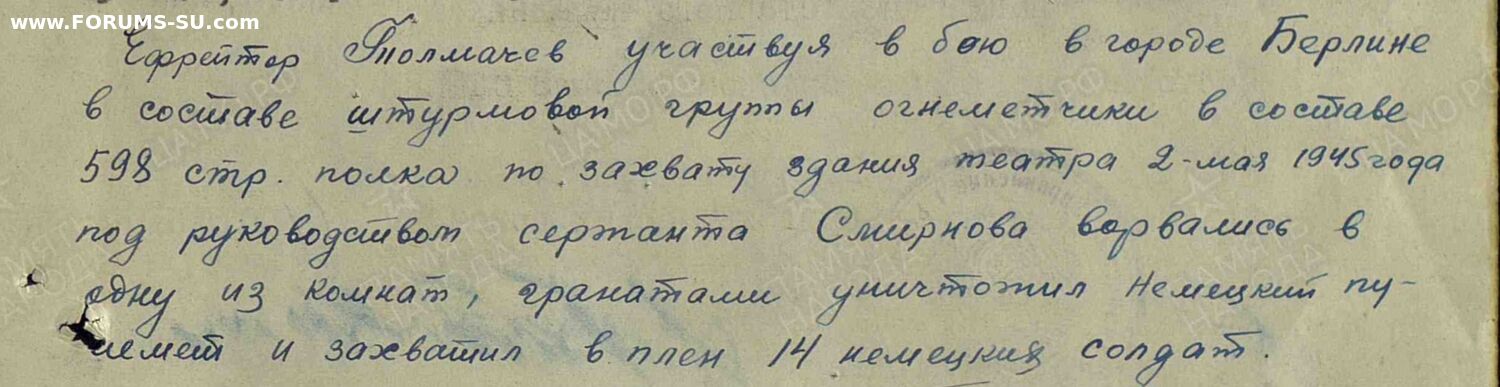 www.FORUMS-SU.com
Ефрейтор Толмачев участвуя в бою в городе Берлине
в составе штурмовой группы огнеметчики в составе
598 стр. полка по захвату здания театра 2-мая 1945 года
под руководством сержанта Смирнова ворвались в
одну из комнат, гранатами уничтожил немецкий пу-
лемет и захватил в плен 14 немецких солдат.